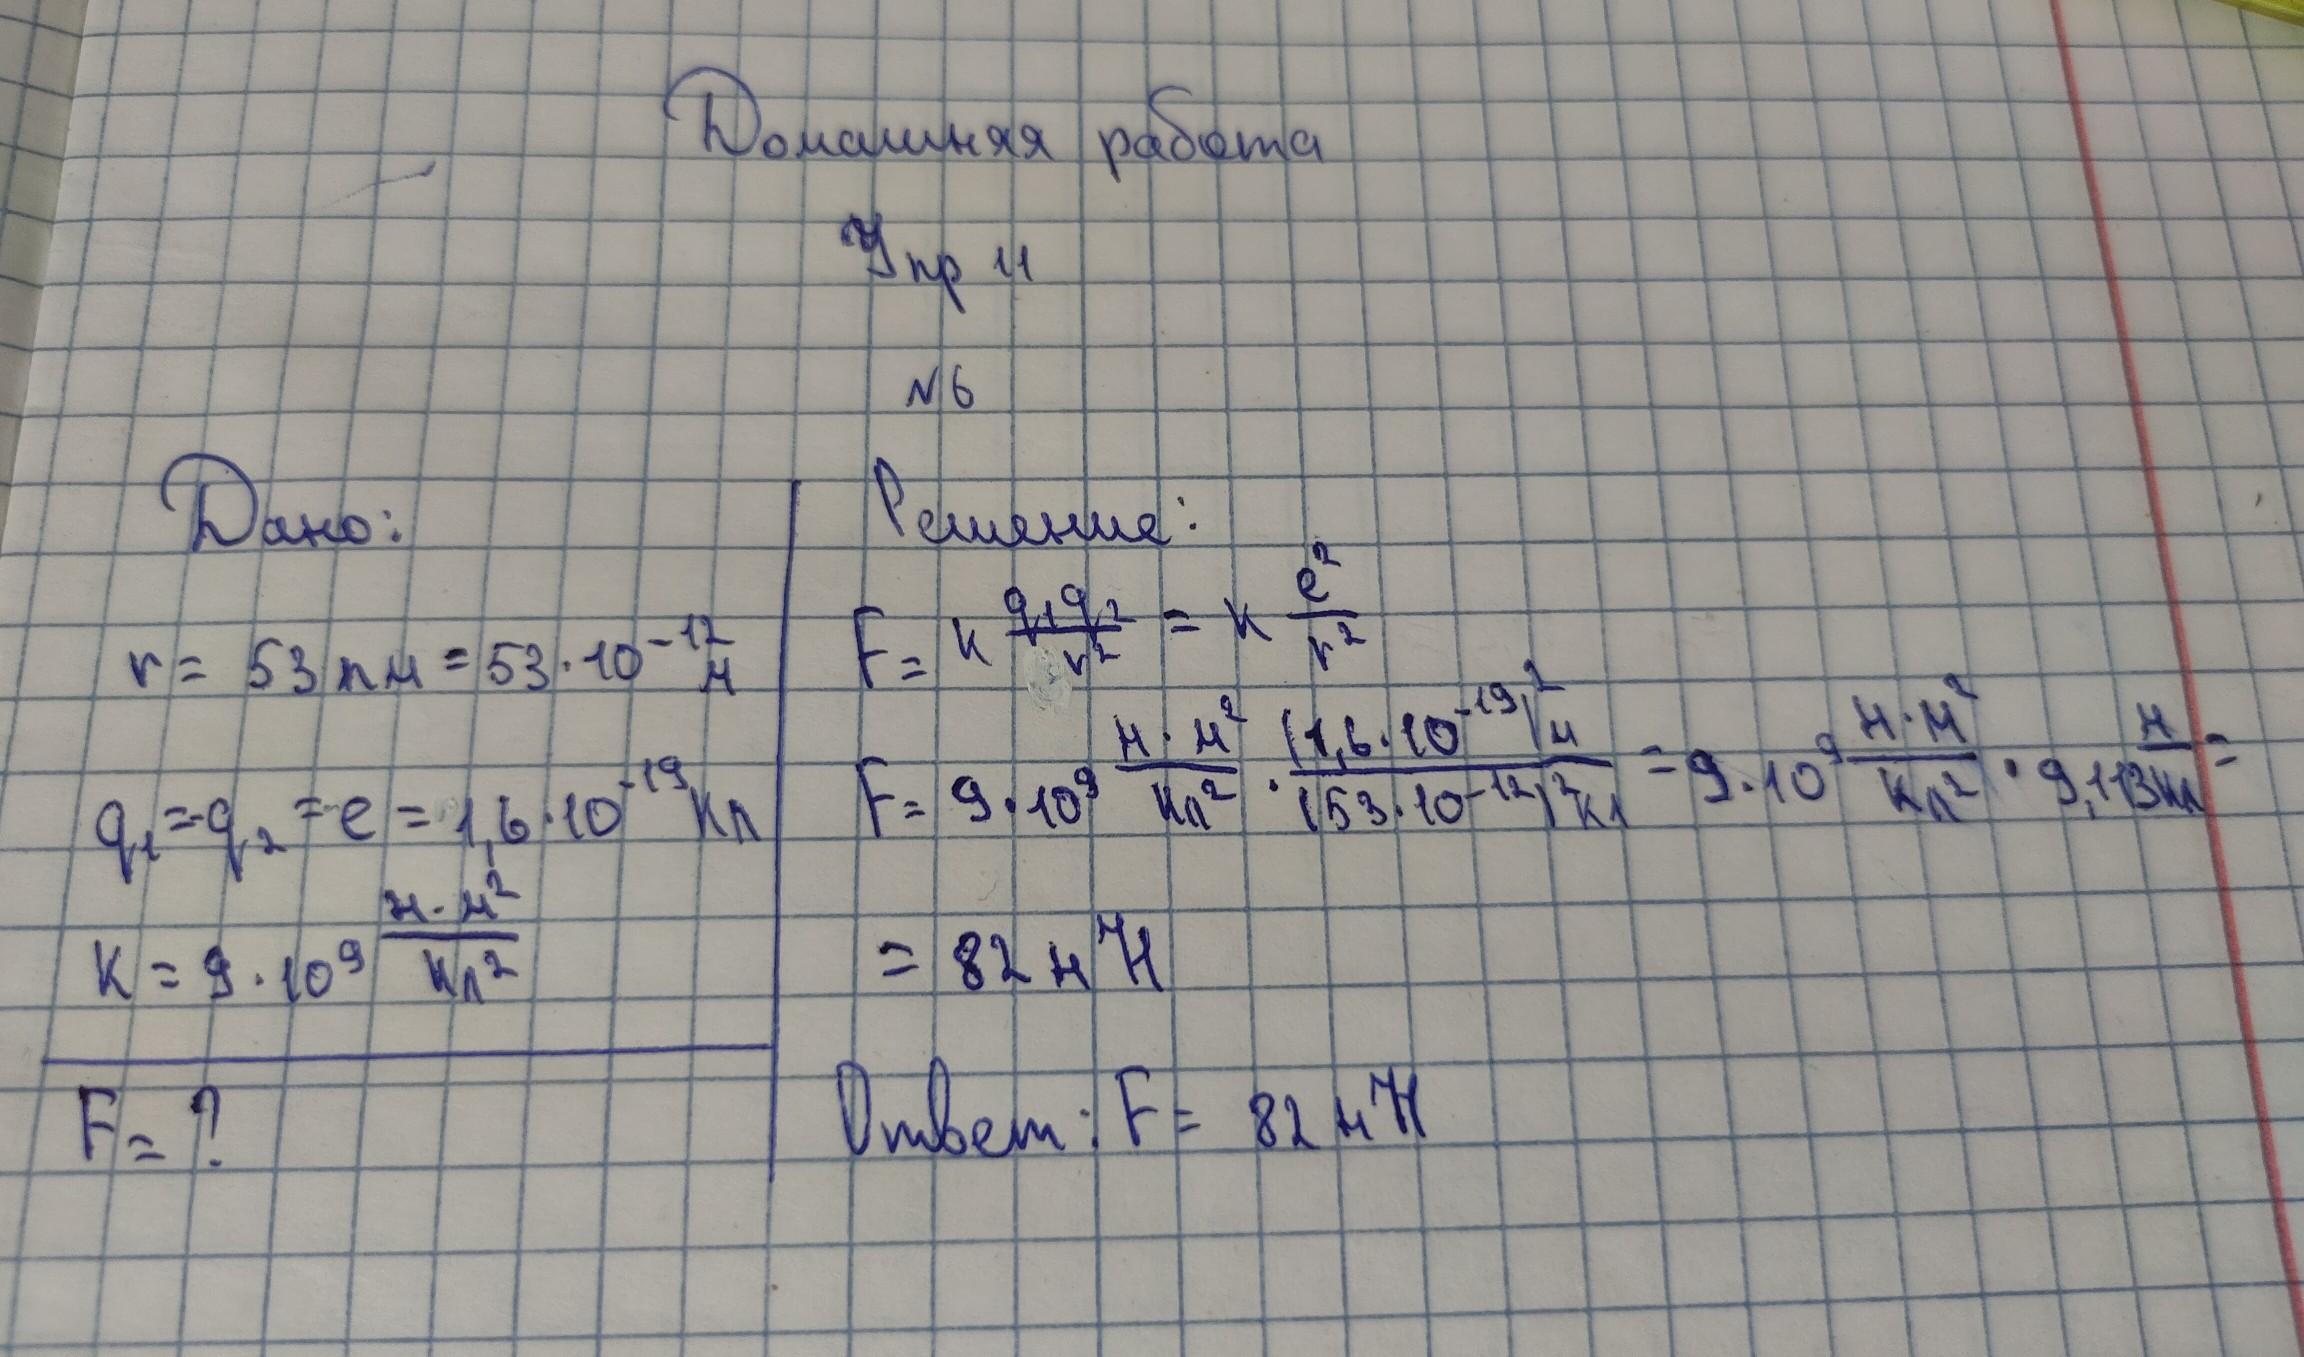 Домашняя работа
Упр 11
№6
Дано:
r = 53 пм = 53·10⁻¹² м
q₁ = -q₂ = e = 1,6·10⁻¹⁹ Кл
K = 9·10⁹ н·м²/Кл²
F = ?
Решение:
F = к q₁q₂/r² = к e²/r²
F = 9·10⁹ н·м²/Кл² · (1,6·10⁻¹⁹)² м/(53·10⁻¹²)² Кл = 9·10⁹ н·м²/Кл² · 9,113 м/Кл =
= 82 нН
Ответ: F = 82 нН